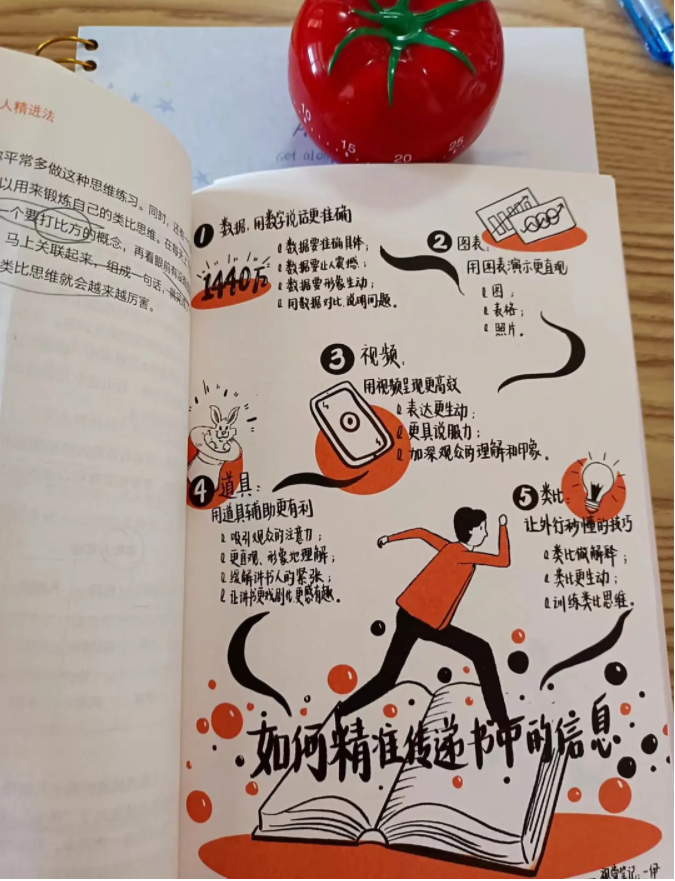 人精进法
平常多做这种思维练习。同时,还
以用来锻炼自己的类比思维,在每天
一个要打比方的概念,再看眼前有
马上关联起来,组成一句话,
类比思维就会越来越厉害。
10 15 20 25
1 数据,用数字说话更准确
1440万
数据要准确具体;
数据要让人震撼;
数据要形象生动;
用数据对比,说明问题。
2 图表:
用图表演示更直观
图;
表格;
照片。
3 视频,
用视频呈现更高效
表达更生动;
更具说服力;
加深观众的理解和印象。
4 道具:
用道具辅助更有利
吸引观众的注意力;
更直观、形象地理解;
缓解讲书人的紧张;
让讲书更戏剧化更感有趣。
5 类比:
让外行秒懂的技巧
类比做解释;
类比更生动;
训练类比思维。
如何精准传递书中的信息
视觉笔记:一伊